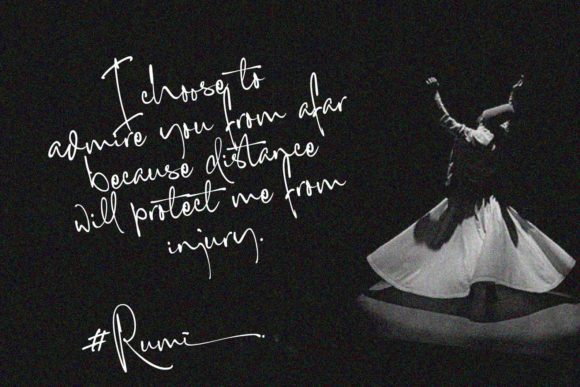 I choose to
admire you from afar
because distance
will protect me from
injury.
#Rumi